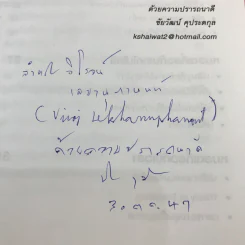 ด้วยความปรารถนาดี
ชัยวัฒน์ คุประตกุล
kshaiwat2@hotmail.com
สำหรับ วิโรจน์
เลขานุภานนท์
(Viroj Lekhanuphanont)
ด้วยความปรารถนาดี
3. ต.ค. 47